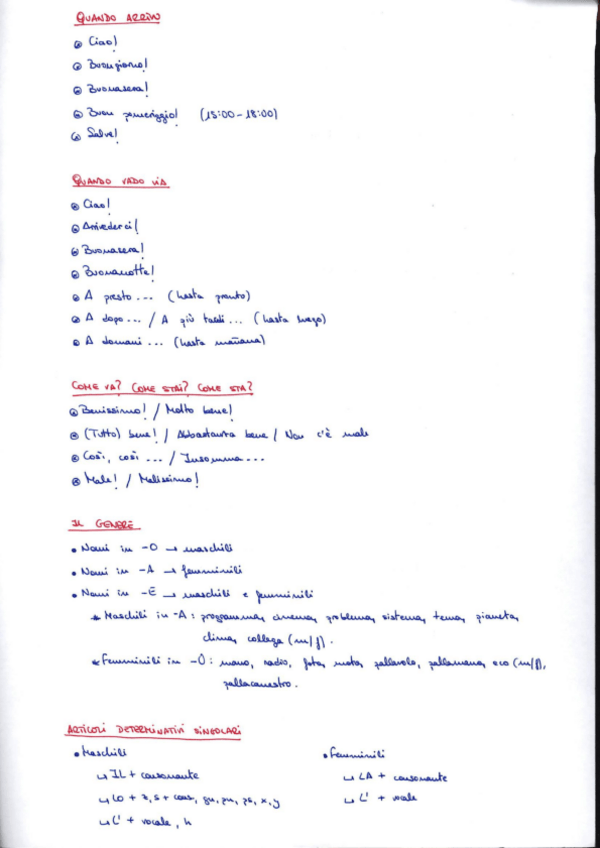 QUANDO ARRIVO
Ciao!
Buongiorno!
Buonasera!
Buon pomeriggio! (15:00-18:00)
Salve!
QUANDO VADO VIA
Ciao!
Arrivederci!
Buonasera!
Buonanotte!
A presto... (hasta pronto)
A dopo... / A più tardi... (hasta luego)
A domani... (hasta mañana)
COME VA? COME STAI? COME STA?
Benissimo! / Molto bene!
(Tutto) bene! / Abbastanza bene / Non c'è male
Così, così ... / Insomma...
Male! / Malissimo!
IL GENERE
Nomi in -O → maschili
Nomi in -A → femminili
Nomi in -E → maschili e femminili
* Maschili in -A: programma, cinema, problema, sistema, tema, pianeta,
clima, collega (m/f).
* Femminili in -O: mano, radio, foto, moto, pallavolo, pallamano, eco (m/f),
pallacanestro.
ARTICOLI DETERMINATIVI SINGOLARI
• Maschili
↳ IL + consonante
↳ LO + z, s + cons, gn, pn, ps, x, y
↳ L' + vocale, h
• Femminili
↳ LA + consonante
↳ L' + vocale